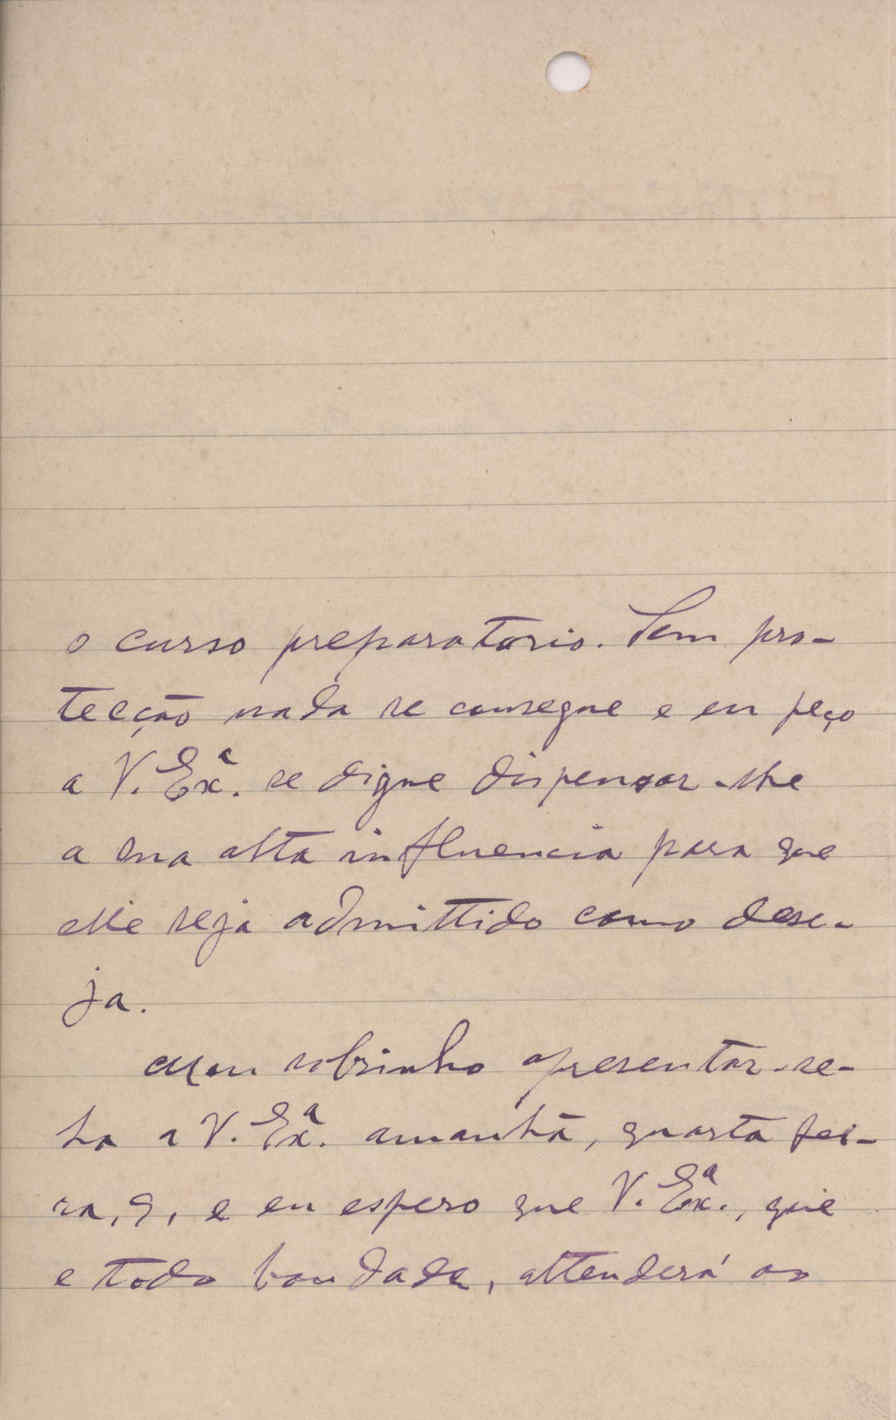 o curso preparatorio. Sem pro-
tecção nada se consegue e eu peço
a V. Exª. se digne dispensar-lhe
a sua alta influencia para que
elle seja admittido como dese-
ja.
Meu sobrinho apresentar-se-
ha a V. Exª. amanhã, quarta fei-
ra, 9, e eu espero que V. Exª., que
e todo bondade, attenderá ao